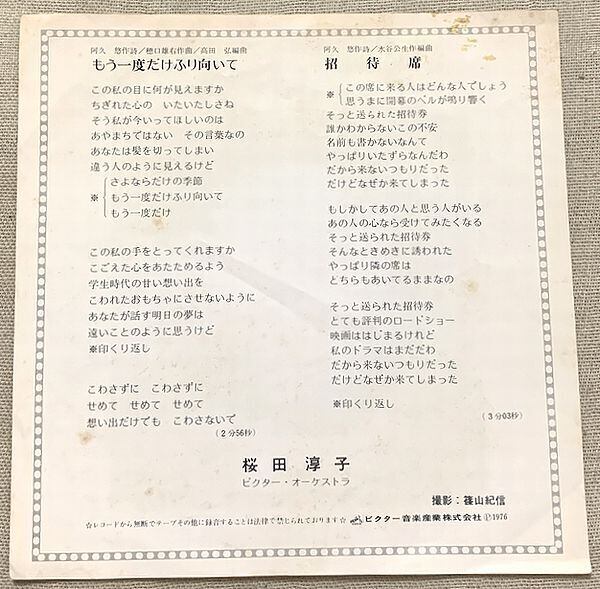 阿久 悠作詩/樋口雄右作曲/高田 弘編曲
もう一度だけふり向いて
この私の目に何が見えますか
ちぎれた心の いたいたしさね
そう私が今いってほしいのは
あやまちではない その言葉なの
あなたは髪を切ってしまい
違う人のように見えるけど
※ さよならだけの季節
もう一度だけふり向いて
もう一度だけ
この私の手をとってくれますか
こごえた心をあたためるよう
学生時代の甘い想い出を
こわれたおもちゃにさせないように
あなたが話す明日の夢は
遠いことのように思うけど
※印くり返し
こわさずに こわさずに
せめて せめて せめて
想い出だけでも こわさないで
(2分56秒)
阿久 悠作詩/水谷公生作編曲
招待席
※ この席に来る人はどんな人でしょう
思うまに開幕のベルが鳴り響く
そっと送られた招待券
誰かわからないこの不安
名前も書かないなんて
やっぱりいたずらなんだわ
だから来ないつもりだった
だけどなぜか来てしまった
もしかしてあの人と思う人がいる
あの人の心なら受けてみたくなる
そっと送られた招待券
そんなときめきに誘われた
やっぱり隣の席は
どちらもあいてるままなの
そっと送られた招待券
とても評判のロードショー
映画ははじまるけれど
私のドラマはまだだわ
だから来ないつもりだった
だけどなぜか来てしまった
※印くり返し
(3分03秒)
桜田淳子
ビクター・オーケストラ
撮影:篠山紀信
☆レコードから無断でテープその他に録音することは法律で禁じられております☆ ビクター音楽産業株式会社Ⓟ1976